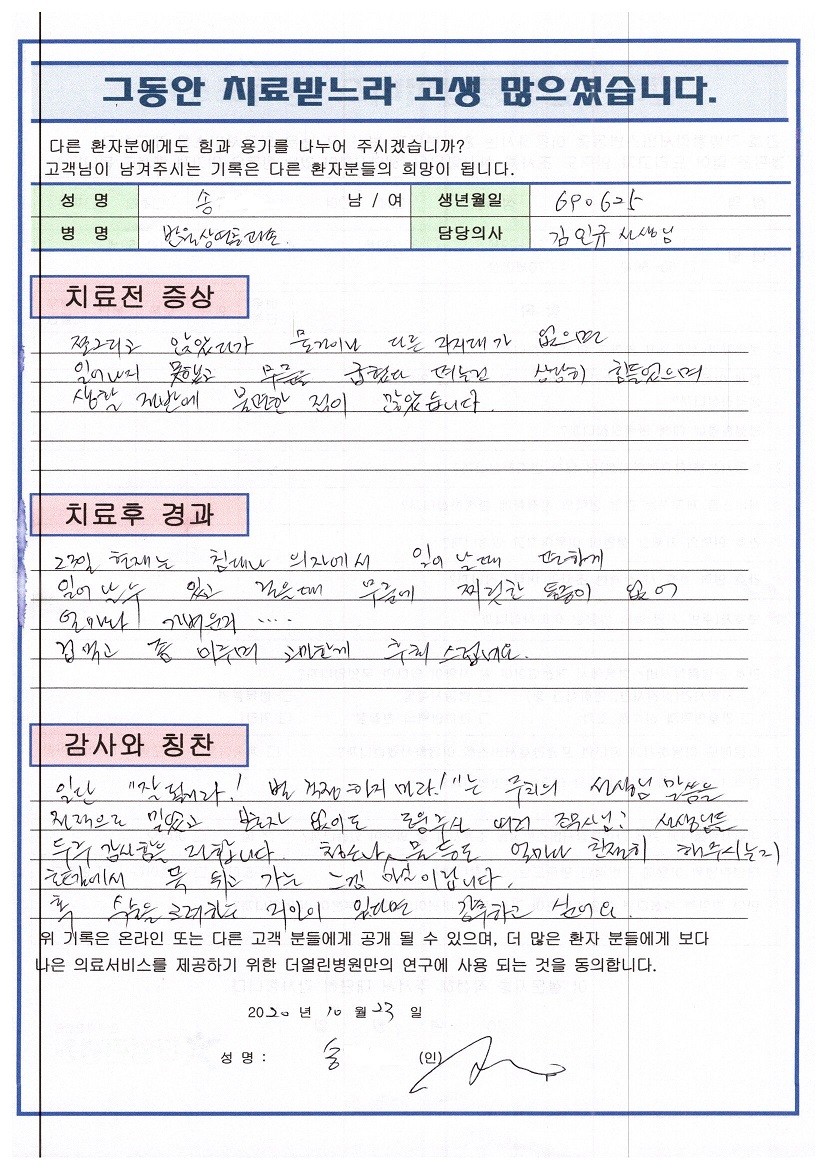 그동안 치료받느라 고생 많으셨습니다.
다른 환자분에게도 힘과 용기를 나누어 주시겠습니까?
고객님이 남겨주시는 기록은 다른 환자분들의 희망이 됩니다.
성 명 송 남 / 여 생년월일 690625
병 명 반월상연골파손. 담당의사 김인규 선생님
치료전 증상
쭐그리고 앉았다가 물건이나 다른 지지대가 없으면
일어나지 못했고 무릎을 굽혔다 펴는건 상당히 힘들었으며
생활 제반에 불편한 점이 많았습니다.
치료후 경과
23일 현재는 침대나 의자에서 일어날때 편하게
일어날수 있고 걸을때 무릎에 찌릿한 통증이 없어
얼마나 가벼운지 ....
겁먹고 좀 미루며 고민한게 후회스럽네요.
감사와 칭찬
일단 "잘 될거라! 별 걱정하지마라!"는 주치의 선생님 말씀을
전적으로 믿었고 보호자 없이도 선생님들
두루 감사함을 전합니다. 청소나, 물 등도 얼마나 친절히 해주시는지
호텔에서 푹 쉬고 가는 느낌 마저 이랍니다.
혹 수술을 고려하는 지인이 있다면 강추하고 싶어요.
위 기록은 온라인 또는 다른 고객 분들에게 공개 될 수 있으며, 더 많은 환자 분들에게 보다
나은 의료서비스를 제공하기 위한 더열린병원만의 연구에 사용 되는 것을 동의합니다.
2020 년 10 월 23 일
성 명 : 송 (인)